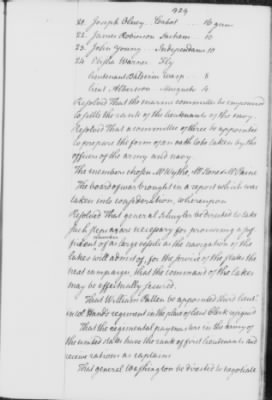 424
21. Joseph Olney . . Cabot . . . 16 guns
22. James Robinson Sachem . . 10
23. John Young . . . Independence 10
24 Elisha Warner Fly
lieutenant Baldwin Wasp . . 8
lieut Alberson Musquito 4
Resolved That the marine committee be empowered
to settle the rank of the lieutenants of the navy.
Resolved That a committee of three be appointed
to prepare the form of an oath to be taken by the
officers of the army and navy
The members chosen Mr Wythe, Mr Paine
The board of war brought in a report which was
taken into consideration, whereupon
Resolved That general Schuyler be directed to take
such steps as are necessary for procuring a suf
ficient number of as large vessels as the navigation of the
lakes will admit of, for the service of the states the
next campaign, that the command of the lakes
may be effectually secured.
That William Patten be appointed third lieut.
in col Hand's regiment in the place of lieut Clark resigned
That the regimental paymasters in the army of
the united states have the rank of first lieutenants and
receive rations as captains
That general Washington be directed to negotiate